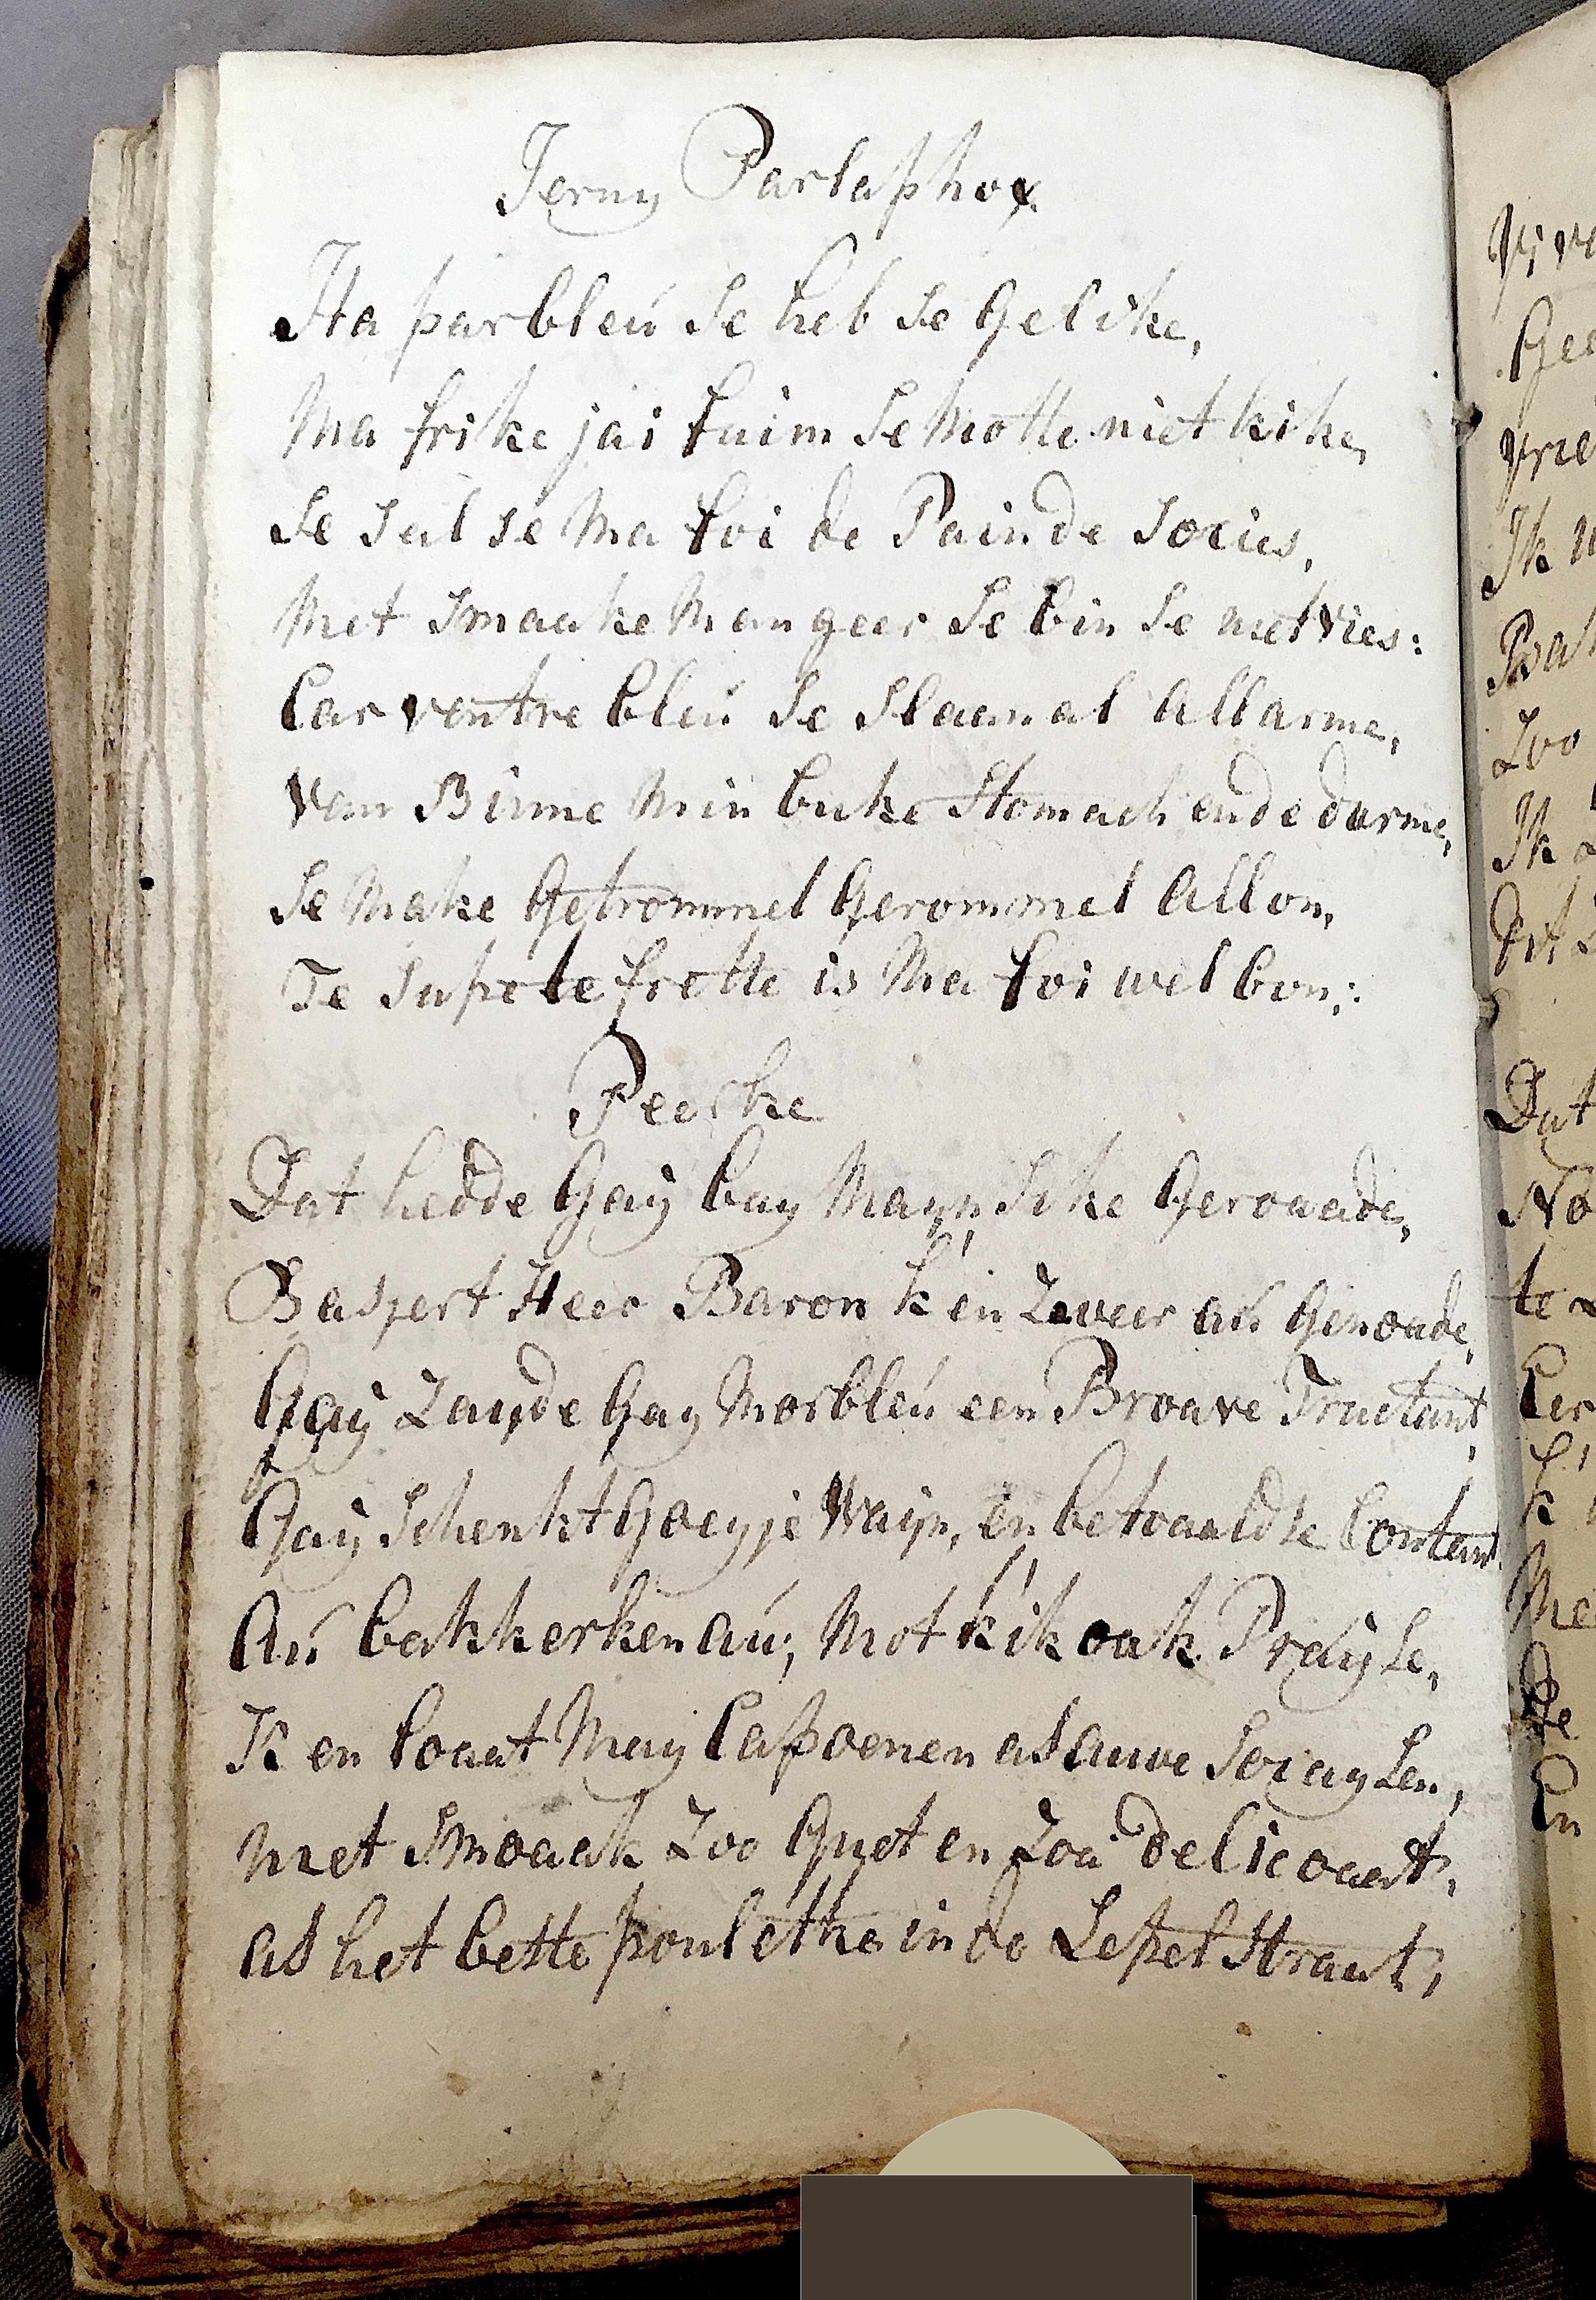 Jerny Parlaphox
Ha parbleú se heb se Gelike,
Ma frike jai fuim se Motte niet kike,
Se sul se Ma foi de Pain de Socies,
Met smaake Mangeer se bin se niet vies:
Car ventre bleú se slaen al Allarme,
Van Binne Min buke Stomach ende darme,
Se Make Getrommel Gerommel Allon,
Te Supe te frette is Ma foi wel bon;:
Peerke
Dat hedde Gaÿ bay Mayn Sike Geroade,
Baspert Heer Baron k'en Zweer aú Genoade,
Gaÿ Zayde Gay Morbleú een Broave Tractant,
Gaÿ Schenkt Goeyje Waijn, en betoaeldt Contant
Aú bakkerken aú; Mot k'ik oak Praijse,
K en loaat Maij Capoenen as auwe Sociaysen,
met Smoaak Zoo Gnet en Zoa delicoaet,
as het bette pouletke in de Lepelstraat,
Ik
Zoo
Ik
Dat
No
te
k
Me
De
En